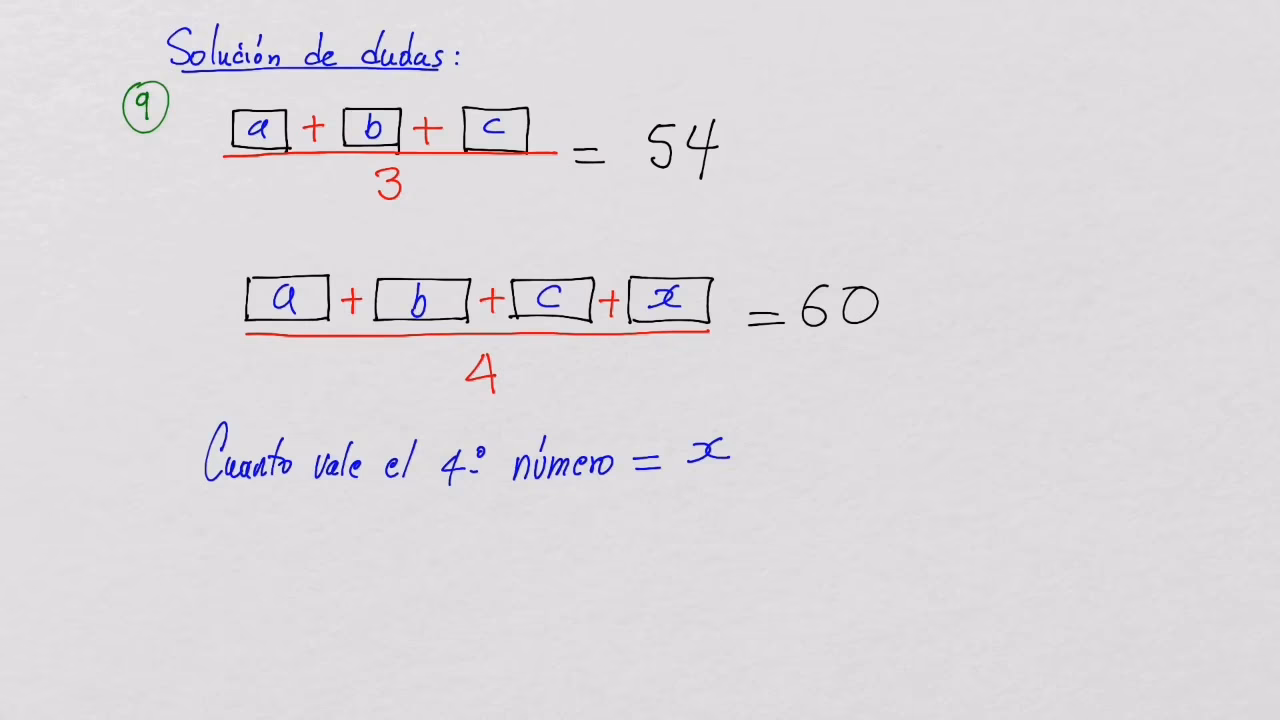 Solución de dudas:
9
a + b + c
3
= 54
a + b + c + x
4
= 60
Cuanto vale el 4.º número = x